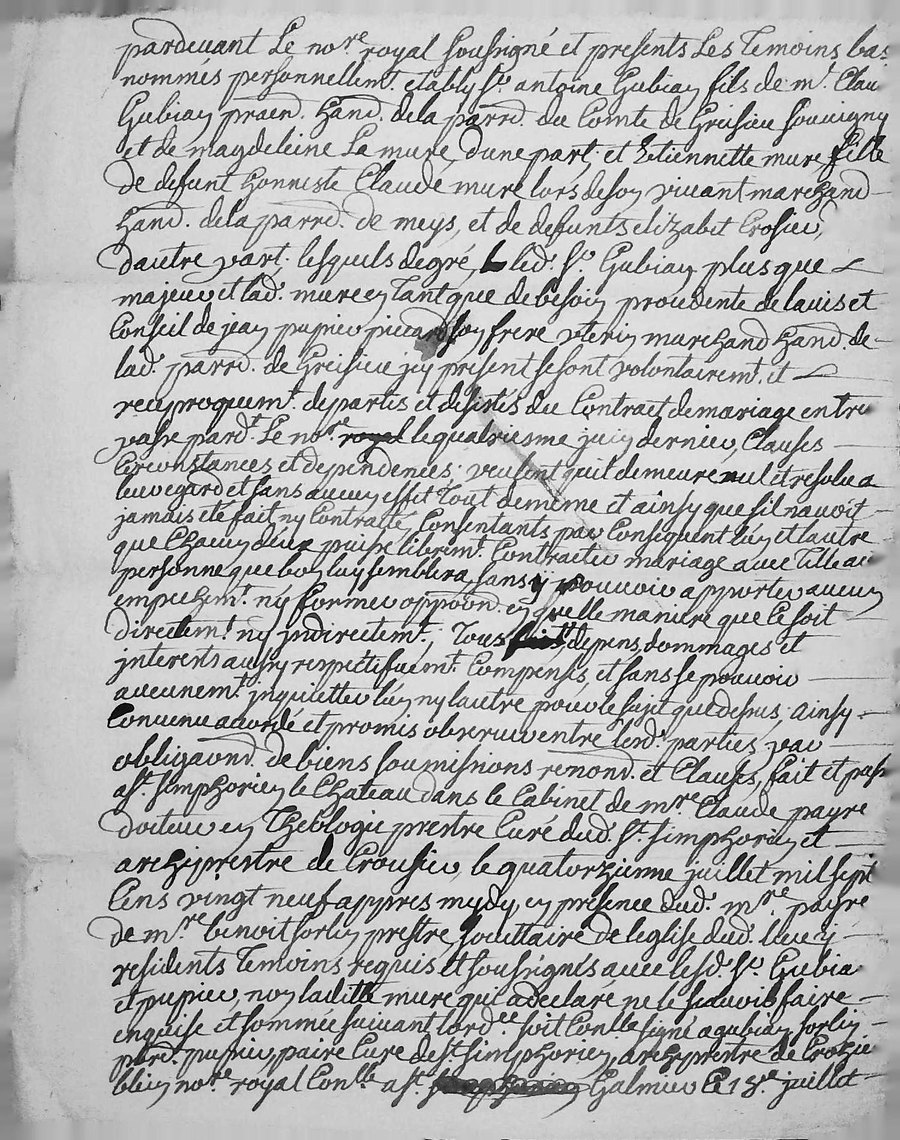 pardevant Le no.re royal soussigné et presents Les Temoins bas
nommés personnellem.t etably s.r antoine Gubian fils de m.r Clau
Gubian praen. hand. de la parr. du Comte de Greisieu souvigny
et de magdeleine La mure, d'une part; et Etiennette mure fille
de defunt honneste Claude mure lors de son vivant marchand
hand. de la parr. de meys, et de defunts elizabet Crosier,
dautre part; lesquels de gré, led. s.r Gubian plus que
majeur et lad. mure en Tant que de besoin procedente de lavis et
Conseil de jean pupier son frere uterin marchand hand. de
lad. parr. de Greisieu jcy present se sont volontairem.t et
reciproquem.t departis et desistés du Contract de mariage entre
passé pard.t Le no.re royal le quatriesme juin dernier, Clauses
Circonstances et dependences; veulent quil demeure nul et resolu a
leur egard et sans aucun effet Tout de meme et ainsy que sil navoit
jamais eté fait ny Contracté, Consentants par Consequent lun et lautre
que Chacun deux puisse librem.t Contracter mariage avec Telle au
personne que bon luy semblera, sans y pouvoir apporter aucun
empechem.t ny former oppoon. en quelle maniere que Ce soit
directem.t ny jndirectem.t, Tous depens, dommages et
jnterests aussy respectifuem.t Compensés, et sans se pouvoir
aucunem.t jnquietter lun ny lautre pour le sujet que dessus; ainsy
Convenu acordé et promis observer entre lesd. parties, par
obligaond. de biens soumissions renond. et Clauses, fait et passé
a s.t simphorien le Chateau dans le Cabinet de m.re Claude payre
docteur en Theologie prestre Curé dud. s.t simphorien et
archyprestre de Crousieu, le quatorzieme juillet mil sept
Cens vingt neuf appres mydy, en presence dud. m.re payre
de m.re benoit sorlin prestre societtaire de leglise dud. lieu y
residents Temoins requis et soussignés avec lesd. s.r Gubia
et pupier, non laditte mure qui a declaré ne le scavoir faire
enquise et sommée suivant lord.ce soit Con.lle signé a gubian, sorlin
pbr. pupier, paire Curé de s.t simphorien, archyprestre de Crozie
blein no.re royal Con.lle a s.t Galmier Ce 18.e juillet